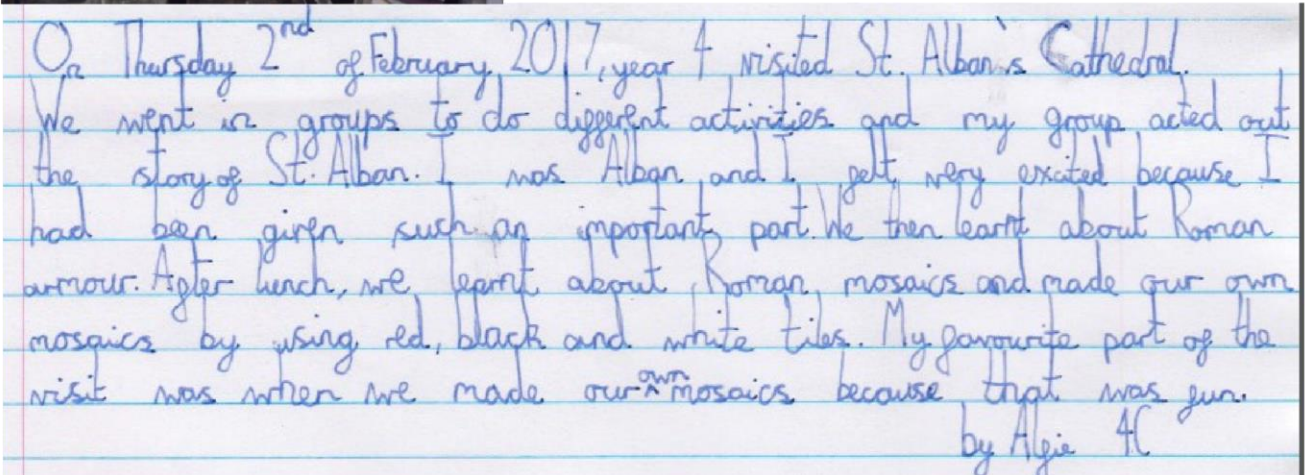 On Thursday 2nd of February 2017, year 4 visited St. Alban's Cathedral.
We went in groups to do different activities and my group acted out
the story of St. Alban. I was Alban and I felt very excited because I
had been given such an important part. We then learnt about Roman
armour. After lunch, we learnt about Roman mosaics and made our own
mosaics by using red, black and white tiles. My favourite part of the
visit was when we made our own mosaics because that was fun.
by Alfie 4C